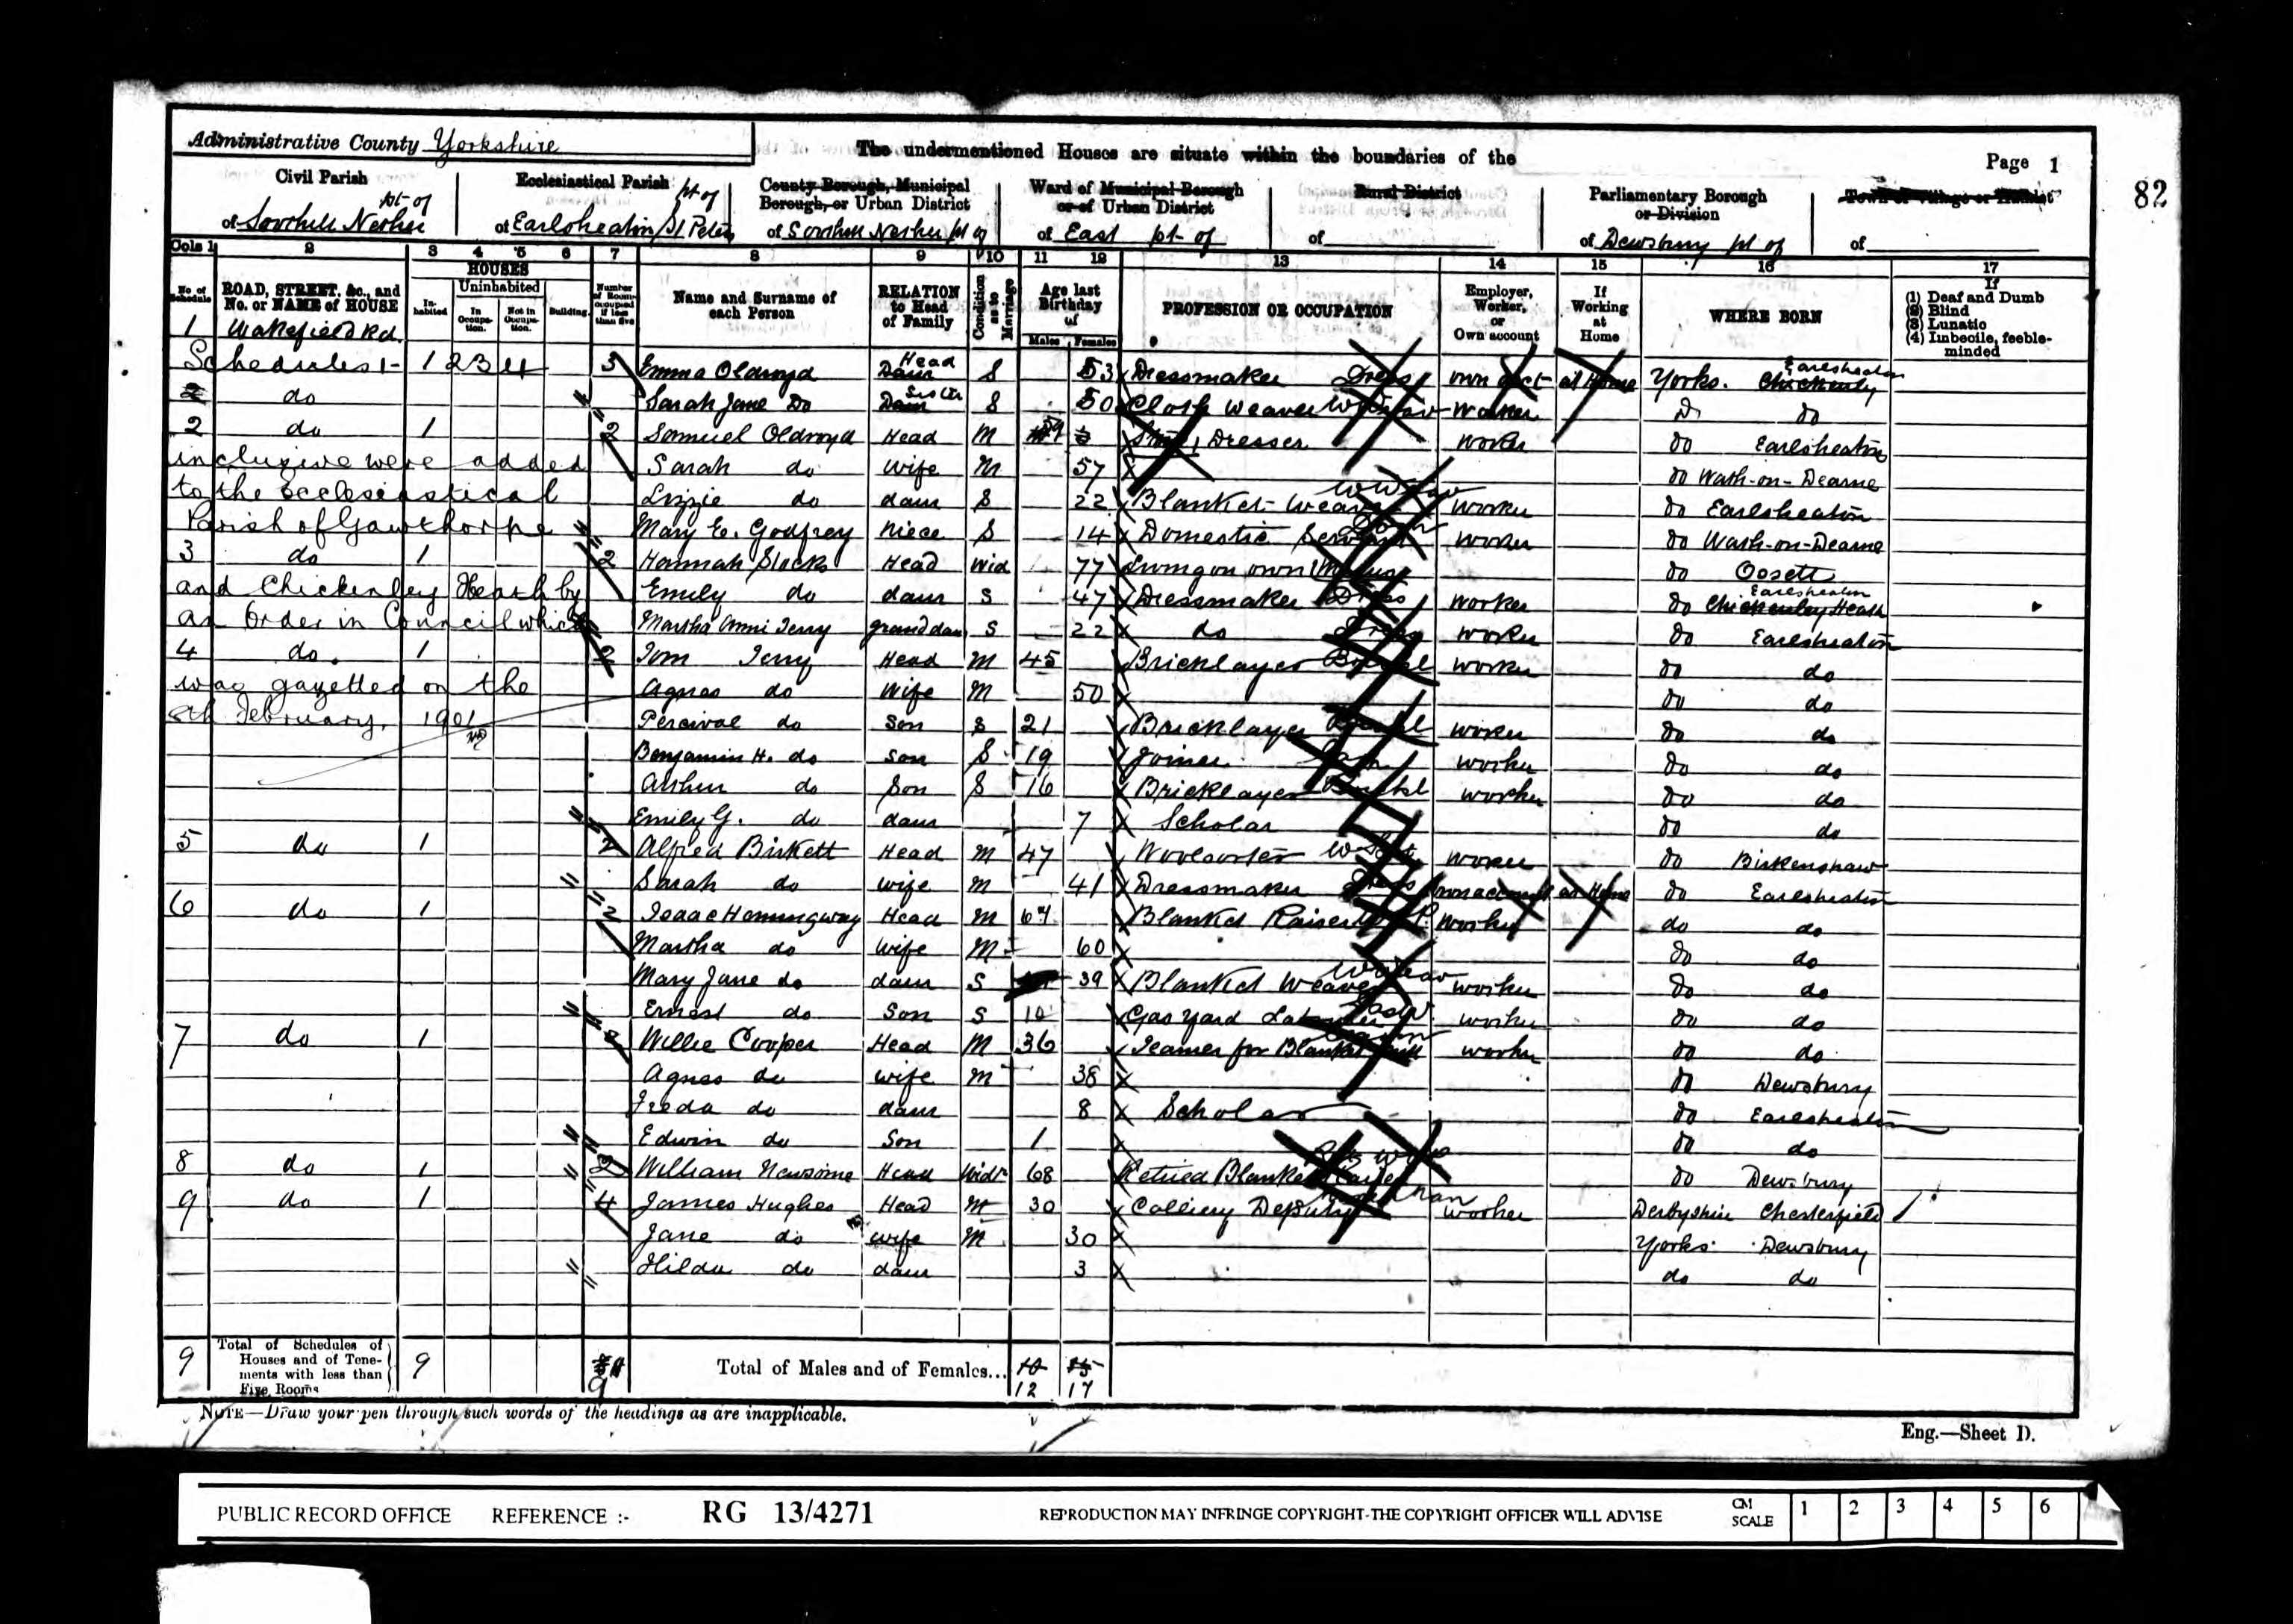 Administrative County Yorkshire
The undermentioned Houses are situate within the boundaries of the
Page 1
82
Civil Parish
pt of
of Soothill Nether
Ecclesiastical Parish pt of
of Earlsheaton St Peters
County Borough, Municipal Borough, or Urban District
of Soothill Nether pt of
Ward of Municipal Borough or of Urban District
of East pt of
Rural District
of
Parliamentary Borough or Division
of Dewsbury pt of
Town or Village or Hamlet
of
Cols 1 2 3 4 5 6 7 8 9 10 11 12 13 14 15 16 17
No. of Schedule
ROAD, STREET, &c., and No. or NAME of HOUSE
HOUSES
Inhabited
Uninhabited
In Occupation.
Not in Occupation.
Building.
Number of Rooms occupied if less than five
Name and Surname of each Person
RELATION to Head of Family
Condition as to Marriage
Age last Birthday of
Males Females
PROFESSION OR OCCUPATION
Employer, Worker, or Own account
If Working at Home
WHERE BORN
If
(1) Deaf and Dumb
(2) Blind
(3) Lunatic
(4) Imbecile, feeble-minded
1 Wakefield Rd.
Schedules 1- 1 2 3 4 3 Emma Oldroyd Daur Head S 53 Dressmaker Dress own acct at Home Yorks. Chickenley Earlsheaton
2 do Sarah Jane Do Daur Sister S 50 Cloth Weaver Worker Do do
2 do 1 2 Samuel Oldroyd Head M 59 Dresser Worker do Earlsheaton
inclusive were added Sarah do Wife M 57 do Wath-on-Dearne
to the ecclesiastical Lizzie do daur S 22 Blanket Weaver worker do Earlsheaton
Parish of Gawthorpe Mary E. Godfrey Niece S 14 Domestic Servant worker do Wath-on-Dearne
3 do 1 2 Hannah Slacks Head Wid 77 Living on own Means do Ossett
and Chickenley Heath by Emily do daur S 47 Dressmaker Dress worker do Chickenley Heath Earlsheaton
an Order in Council which Martha Anni Terry grand daur S 22 do Dress worker do Earlsheaton
4 do. 1 2 Tom Terry Head M 45 Bricklayer worker do do
was gazetted on the Agnes do Wife M 50 do do
8th February, 1901 Percival do Son S 21 Bricklayer worker do do
Benjamin H. do Son S 19 Joiner worker do do
Arthur do Son S 16 Bricklayer worker do do
Emily G. do daur 7 Scholar do do
5 do 1 2 Alfred Birkett Head M 47 Woolsorter worker do Birkenshaw
Sarah do wife M 41 Dressmaker Dress own account at Home do Earlsheaton
6 do 1 2 Isaac Hemingway Head M 67 Blanket Raiser Worker do do
Martha do wife M 60 do do
Mary Jane do daur S 39 Blanket Weaver worker do do
Ernest do Son S Gas Yard Labourer worker do do
7 do 1 Willie Cooper Head M 36 Teamer for Blanket worker do do
Agnes do wife M 38 do Dewsbury
Freda do daur 8 Scholar do Earlsheaton
Edwin do Son 1 do do
8 do 1 William Newsome Head Widr 68 Retired Blanket Raiser do Dewsbury
9 do 1 4 James Hughes Head M 30 Colliery Deputy worker Derbyshire Chesterfield
Jane do wife M 30 Yorks. Dewsbury
Hilda do daur 3 do do
9 Total of Schedules of Houses and of Tenements with less than Five Rooms 9 9 Total of Males and of Females... 10 15
12 17
NOTE—Draw your pen through such words of the headings as are inapplicable.
Eng.—Sheet D.
PUBLIC RECORD OFFICE REFERENCE :- RG 13/4271 REPRODUCTION MAY INFRINGE COPYRIGHT-THE COPYRIGHT OFFICER WILL ADVISE CM SCALE 1 2 3 4 5 6